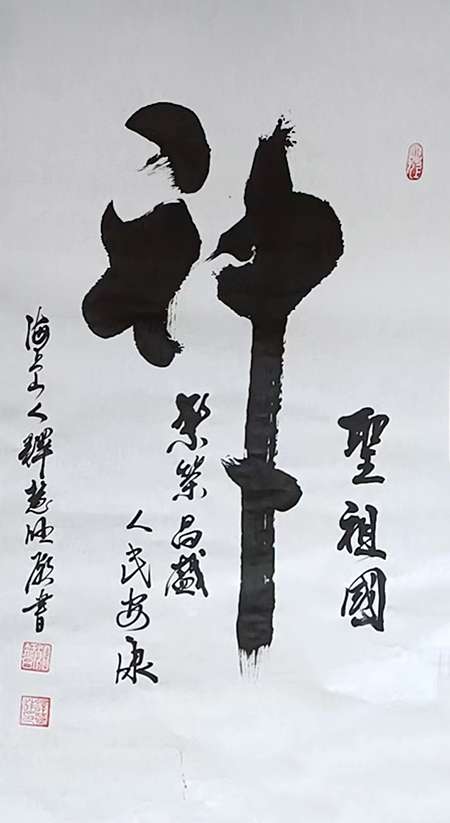 神
聖祖國
繁榮昌盛
人民安康
海上人釋慧書